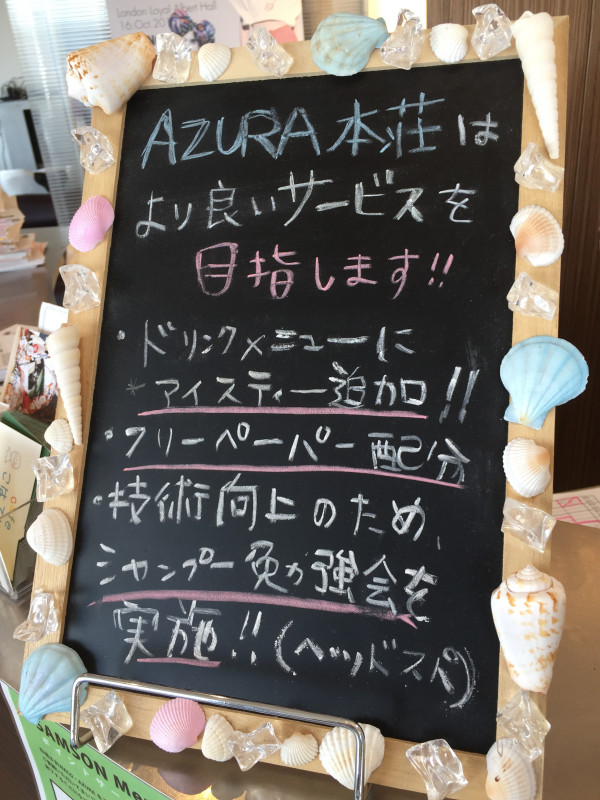 London Loyal Albert Hall
16.Oct.20
AZURA 本荘は
より良いサービスを
目指します!!
・ドリンクメニューに
*アイスティー追加!!
・フリーペーパー配分
・技術向上のため、
シャンプー勉強会を
実施!!(ヘッドスパ)
SAMSON Me